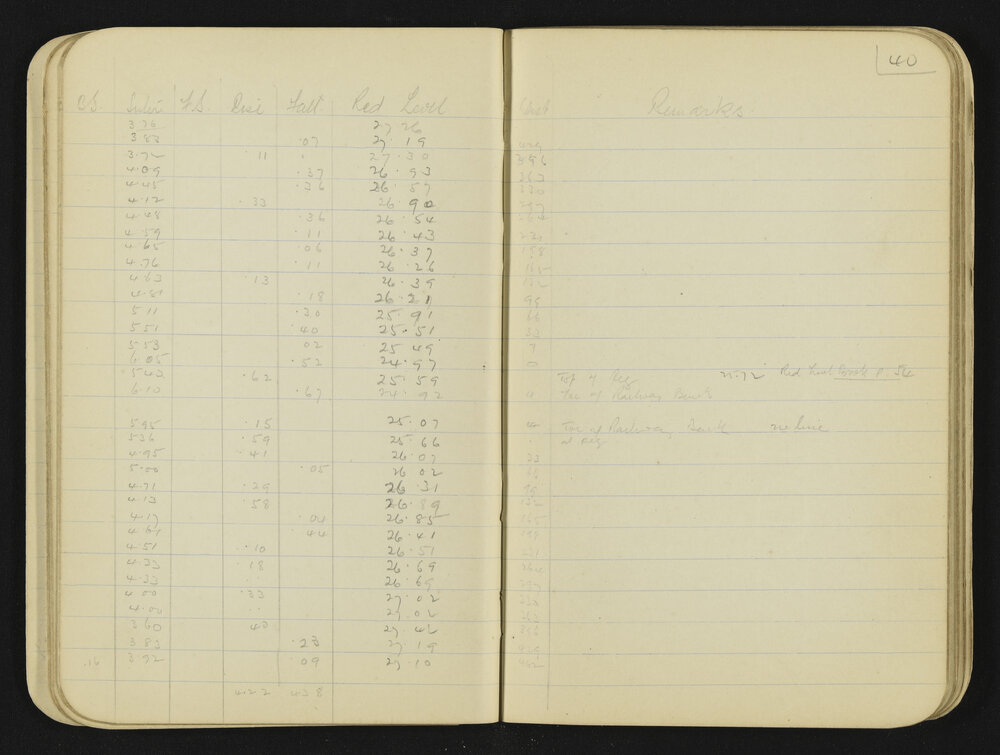 40
B.S. Inter F.S. Rise Fall Red Level Dist Remarks
3.76 27 26
3.83 .07 27.19 429
3.72 .11 27.30 396
4.09 .37 26.93 363
4.45 .36 26.57 330
4.12 .33 26.90 297
4.48 .36 26.54 264
4.59 .11 26.43 231
4.65 .06 26.37 198
4.76 .11 26.26 165
4.63 .13 26.39 132
4.81 .18 26.21 99
5.11 .30 25.91 66
5.51 .40 25.51 33
5.53 .02 25.49 7
6.05 .52 24.97 0
5.43 .62 25.59 Top of Peg 25.72 Red Level Book P.
6.10 .67 24.92 0 Toe of Railway Bank
5.95 .15 25.07 Toe of Railway Bank no line
5.36 .59 25.66 at peg
4.95 .41 26.07 33
5.00 .05 26.02 66
4.71 .29 26.31 99
4.13 .58 26.89 132
4.17 .04 26.85 165
4.61 .44 26.41 198
4.51 .10 26.51 231
4.33 .18 26.69 264
4.33 .. 26.69 297
4.00 .33 27.02 330
4.00 .. 27.02 363
3.60 40 27.42 396
3.83 .23 27.19 429
.16 3.92 09 27.10 462
4.22 4.38